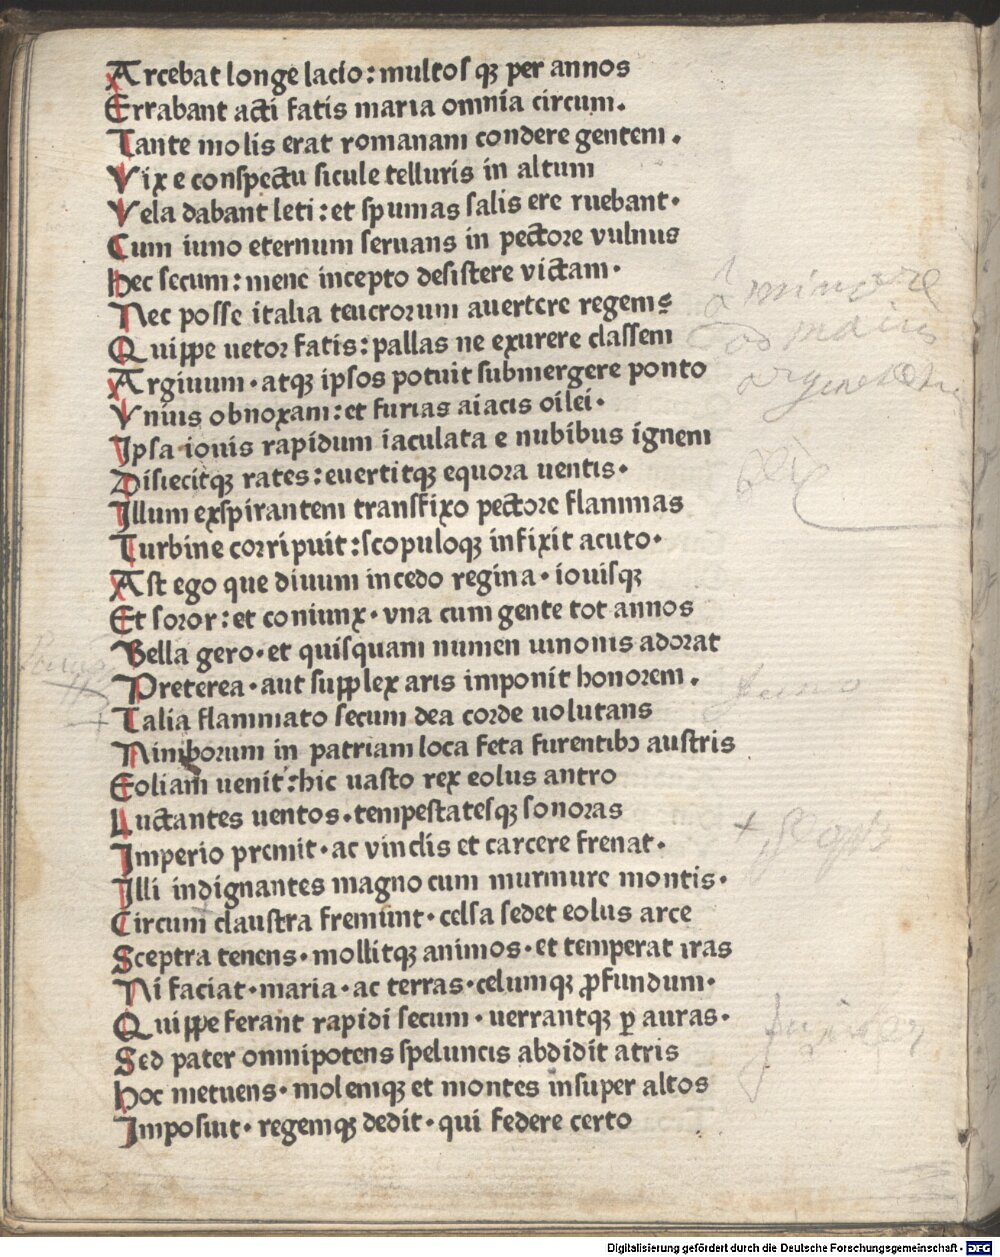 Arcebat longe lacio: multos qꝫ per annos
Errabant acti fatis maria omnia circum.
Tante molis erat romanam condere gentem.
Vix e conspectu sicule telluris in altum
Vela dabant leti: et spumas salis ere ruebant.
Cum iuno eternum seruans in pectore vulnus
Hec secum: mene incepto desistere victam.
Nec posse italia teucrorum auertere regem:
Quippe uetor fatis: pallas ne exurere classem
Argiuum. atqꝫ ipsos potuit submergere ponto
Vnius obnoxam: et furias aiacis oilei.
Ipsa iouis rapidum iaculata e nubibus ignem
Disiecitqꝫ rates: euertitqꝫ equora uentis.
Illum exspirantem transfixo pectore flammas
Turbine corripuit: scopuloqꝫ infixit acuto.
Ast ego que diuum incedo regina. iouisqꝫ
Et soror: et coniunx. vna cum gente tot annos
Bella gero. et quisquam numen uinonis adorat
Preterea. aut supplex aris imponit honorem.
Talia flammato secum dea corde uolutans
Nimborum in patriam loca feta furentibꝫ austris
Eoliam uenit: hic uasto rex eolus antro
Luctantes uentos. tempestatesqꝫ sonoras
Imperio premit. ac vinclis et carcere frenat.
Illi indignantes magno cum murmure montis.
Circum claustra fremunt. celsa sedet eolus arce
Sceptra tenens. mollitqꝫ animos. et temperat iras
Ni faciat. maria. ac terras. celumqꝫ ꝓfundum.
Quippe ferant rapidi secum. uerrantqꝫ ꝑ auras.
Sed pater omnipotens speluncis abdidit atris
Hoc metuens. molemqꝫ et montes insuper altos
Imposuit. regemqꝫ dedit. qui federe certo
Digitalisierung gefördert durch die Deutsche Forschungsgemeinschaft - DFG